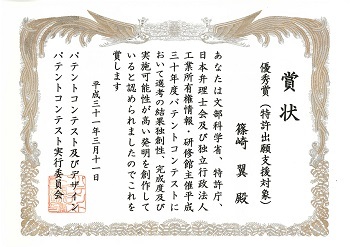 賞状
優秀賞（特許出願支援対象）
篠崎 翼 殿
あなたは文部科学省、特許庁、
日本弁理士会及び独立行政法人
工業所有権情報・研修館主催平成
三十年度パテントコンテストに
おいて選考の結果独創性、完成度及び
実施可能性が高い発明を創作して
いると認められましたのでこれを
賞します
平成三十一年三月十一日
パテントコンテスト及びデザイン
パテントコンテスト実行委員会